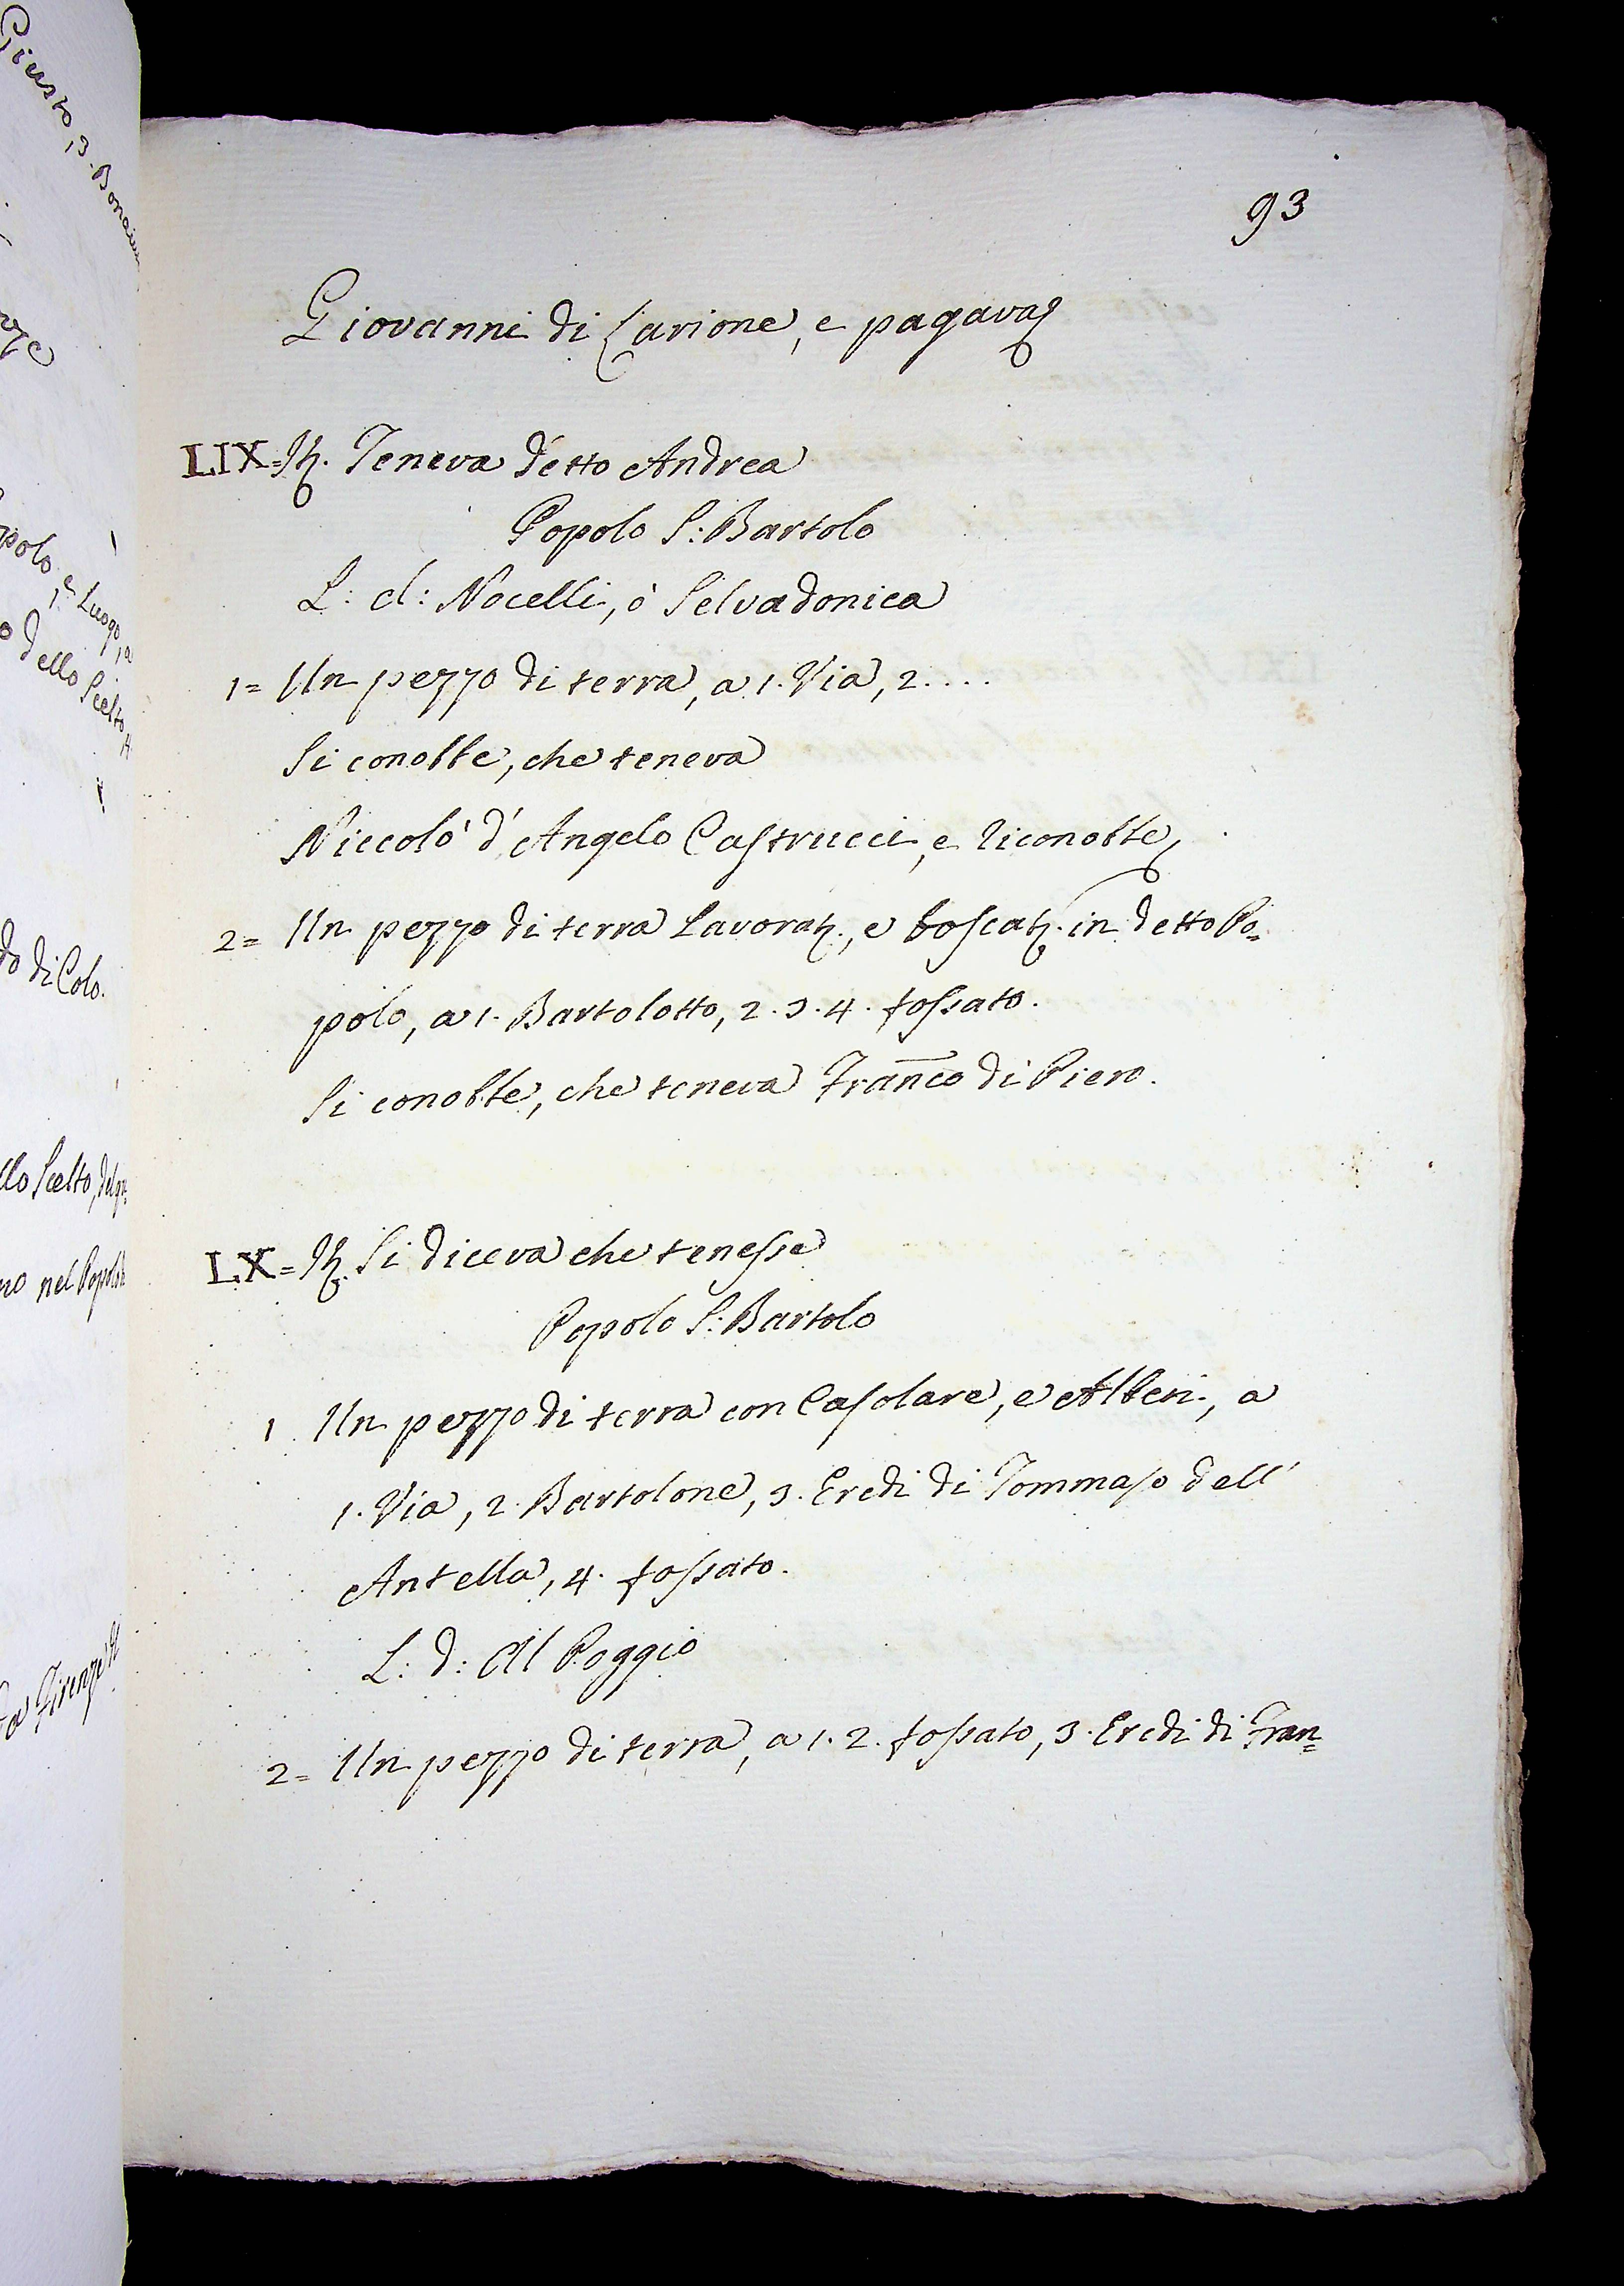 93
Giovanni di Carione, e pagava
LIX = It. Teneva detto Andrea
Popolo S: Bartolo
L: d: Nocelli, ò Selvadonica
1= Un pezzo di terra, a 1. Via, 2....
Si conobbe, che teneva
Niccolò d'Angelo Castrucci, e riconobbe
2= Un pezzo di terra Lavorat., e boscat. in detto Po=
polo, a 1. Bartolotto, 2. 3. 4. fossato.
Si conobbe, che teneva Franco di Piero.
LX = It. Si diceva che tenesse
Popolo S: Bartolo
1 Un pezzo di terra con Casolare, e Alberi, a
1. Via, 2. Bartolone, 3. Eredi di Tommaso dell'
Antella, 4. fossato.
L: d: Al Poggio
2= Un pezzo di terra, a 1. 2. fossato, 3. Eredi di Fran=
Giusto, 3.
polo
1° Luogo, a
dello Scelto, 4
do di Colo.
llo Scelto,
no nel
Firenze